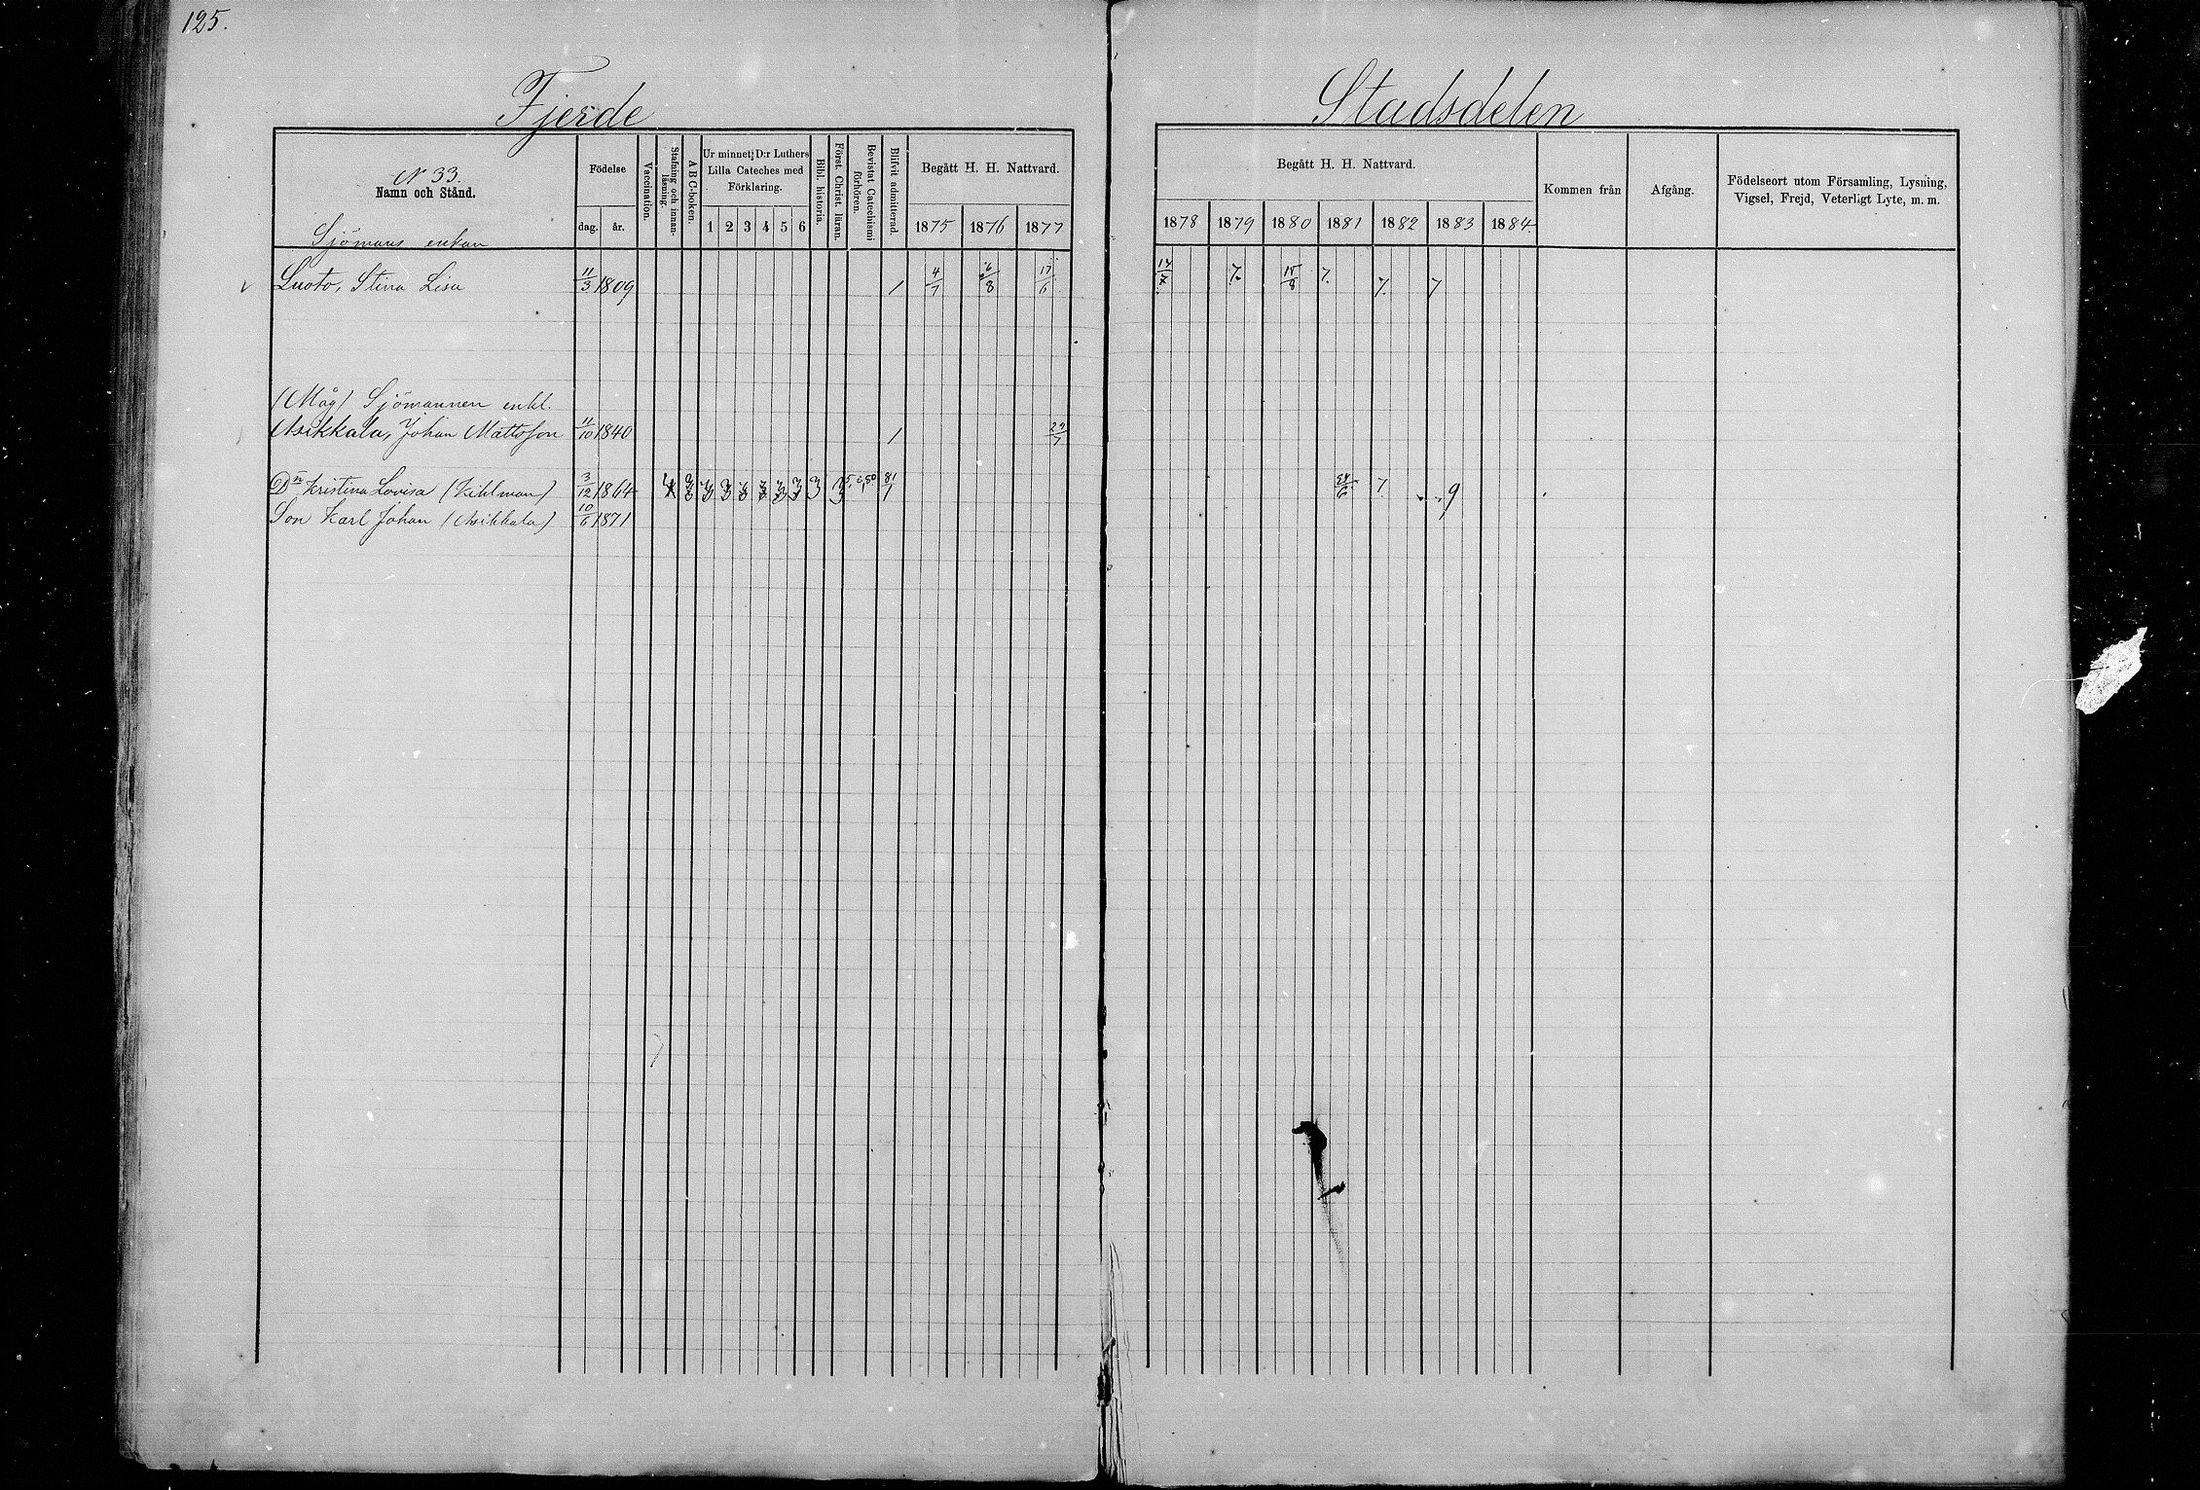 125.
Fjerde Stadsdelen
N 33.
Namn och Stånd.
Födelse
dag. år.
Vaccination.
Stafning och innan-läsning.
A B C-boken.
Ur minnet: D:r Luthers Lilla Cateches med Förklaring.
1 2 3 4 5 6
Bibl. historia.
Först. Christ. läran.
Bevistat Catechismi förhören.
Blifvit admitterad.
Begått H. H. Nattvard.
1875 1876 1877
Begått H. H. Nattvard.
1878 1879 1880 1881 1882 1883 1884
Kommen från
Afgång.
Födelseort utom Församling, Lysning, Vigsel, Frejd, Veterligt Lyte, m. m.
Sjömans enkan
Luoto, Stina Lisa 11/3 1809 1 4/7 6/8 17/6 14/7 7. 15/8 7. 7. 7
(Måg) Sjömannen enkl.
Asikkala, Johan Mattsson 11/10 1840 1 29/7
Dn Kristina Lovisa (Kihlman) 3/12 1864 3 3 81/1 24/6 7. 9
Son Karl Johan (Asikkala) 10/6 1871